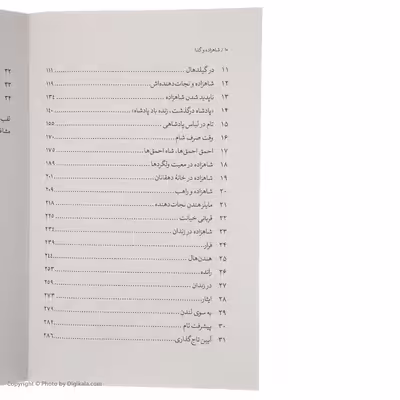 ۱۰ / شاهزاده و گدا
۱۱ در گیلدهال ۱۱۱
۱۲ شاهزاده و نجات‌دهنده‌اش ۱۱۹
۱۳ ناپدید شدن شاهزاده ۱۳۴
۱۴ «پادشاه درگذشت، زنده باد پادشاه» ۱۴۰
۱۵ تام در لباس پادشاهی ۱۵۵
۱۶ وقت صرف شام ۱۷۰
۱۷ احمق احمق‌ها، شاه احمق‌ها ۱۷۵
۱۸ شاهزاده در معیت ولگردها ۱۸۹
۱۹ شاهزاده در خانهٔ دهقانان ۲۰۱
۲۰ شاهزاده و راهب ۲۰۹
۲۱ مایلز هندن نجات‌دهنده ۲۱۸
۲۲ قربانی خیانت ۲۲۵
۲۳ شاهزاده در زندان ۲۳۴
۲۴ فرار ۲۳۹
۲۵ هندن‌هال ۲۴۴
۲۶ رانده ۲۵۳
۲۷ در زندان ۲۵۹
۲۸ ایثار ۲۷۳
۲۹ به سوی لندن ۲۷۹
۳۰ پیشرفت تام ۲۸۲
۳۱ آیین تاج‌گذاری ۲۸۶
۳۲
۳۳
۳۴
Copyright © Photo by Digikala.com